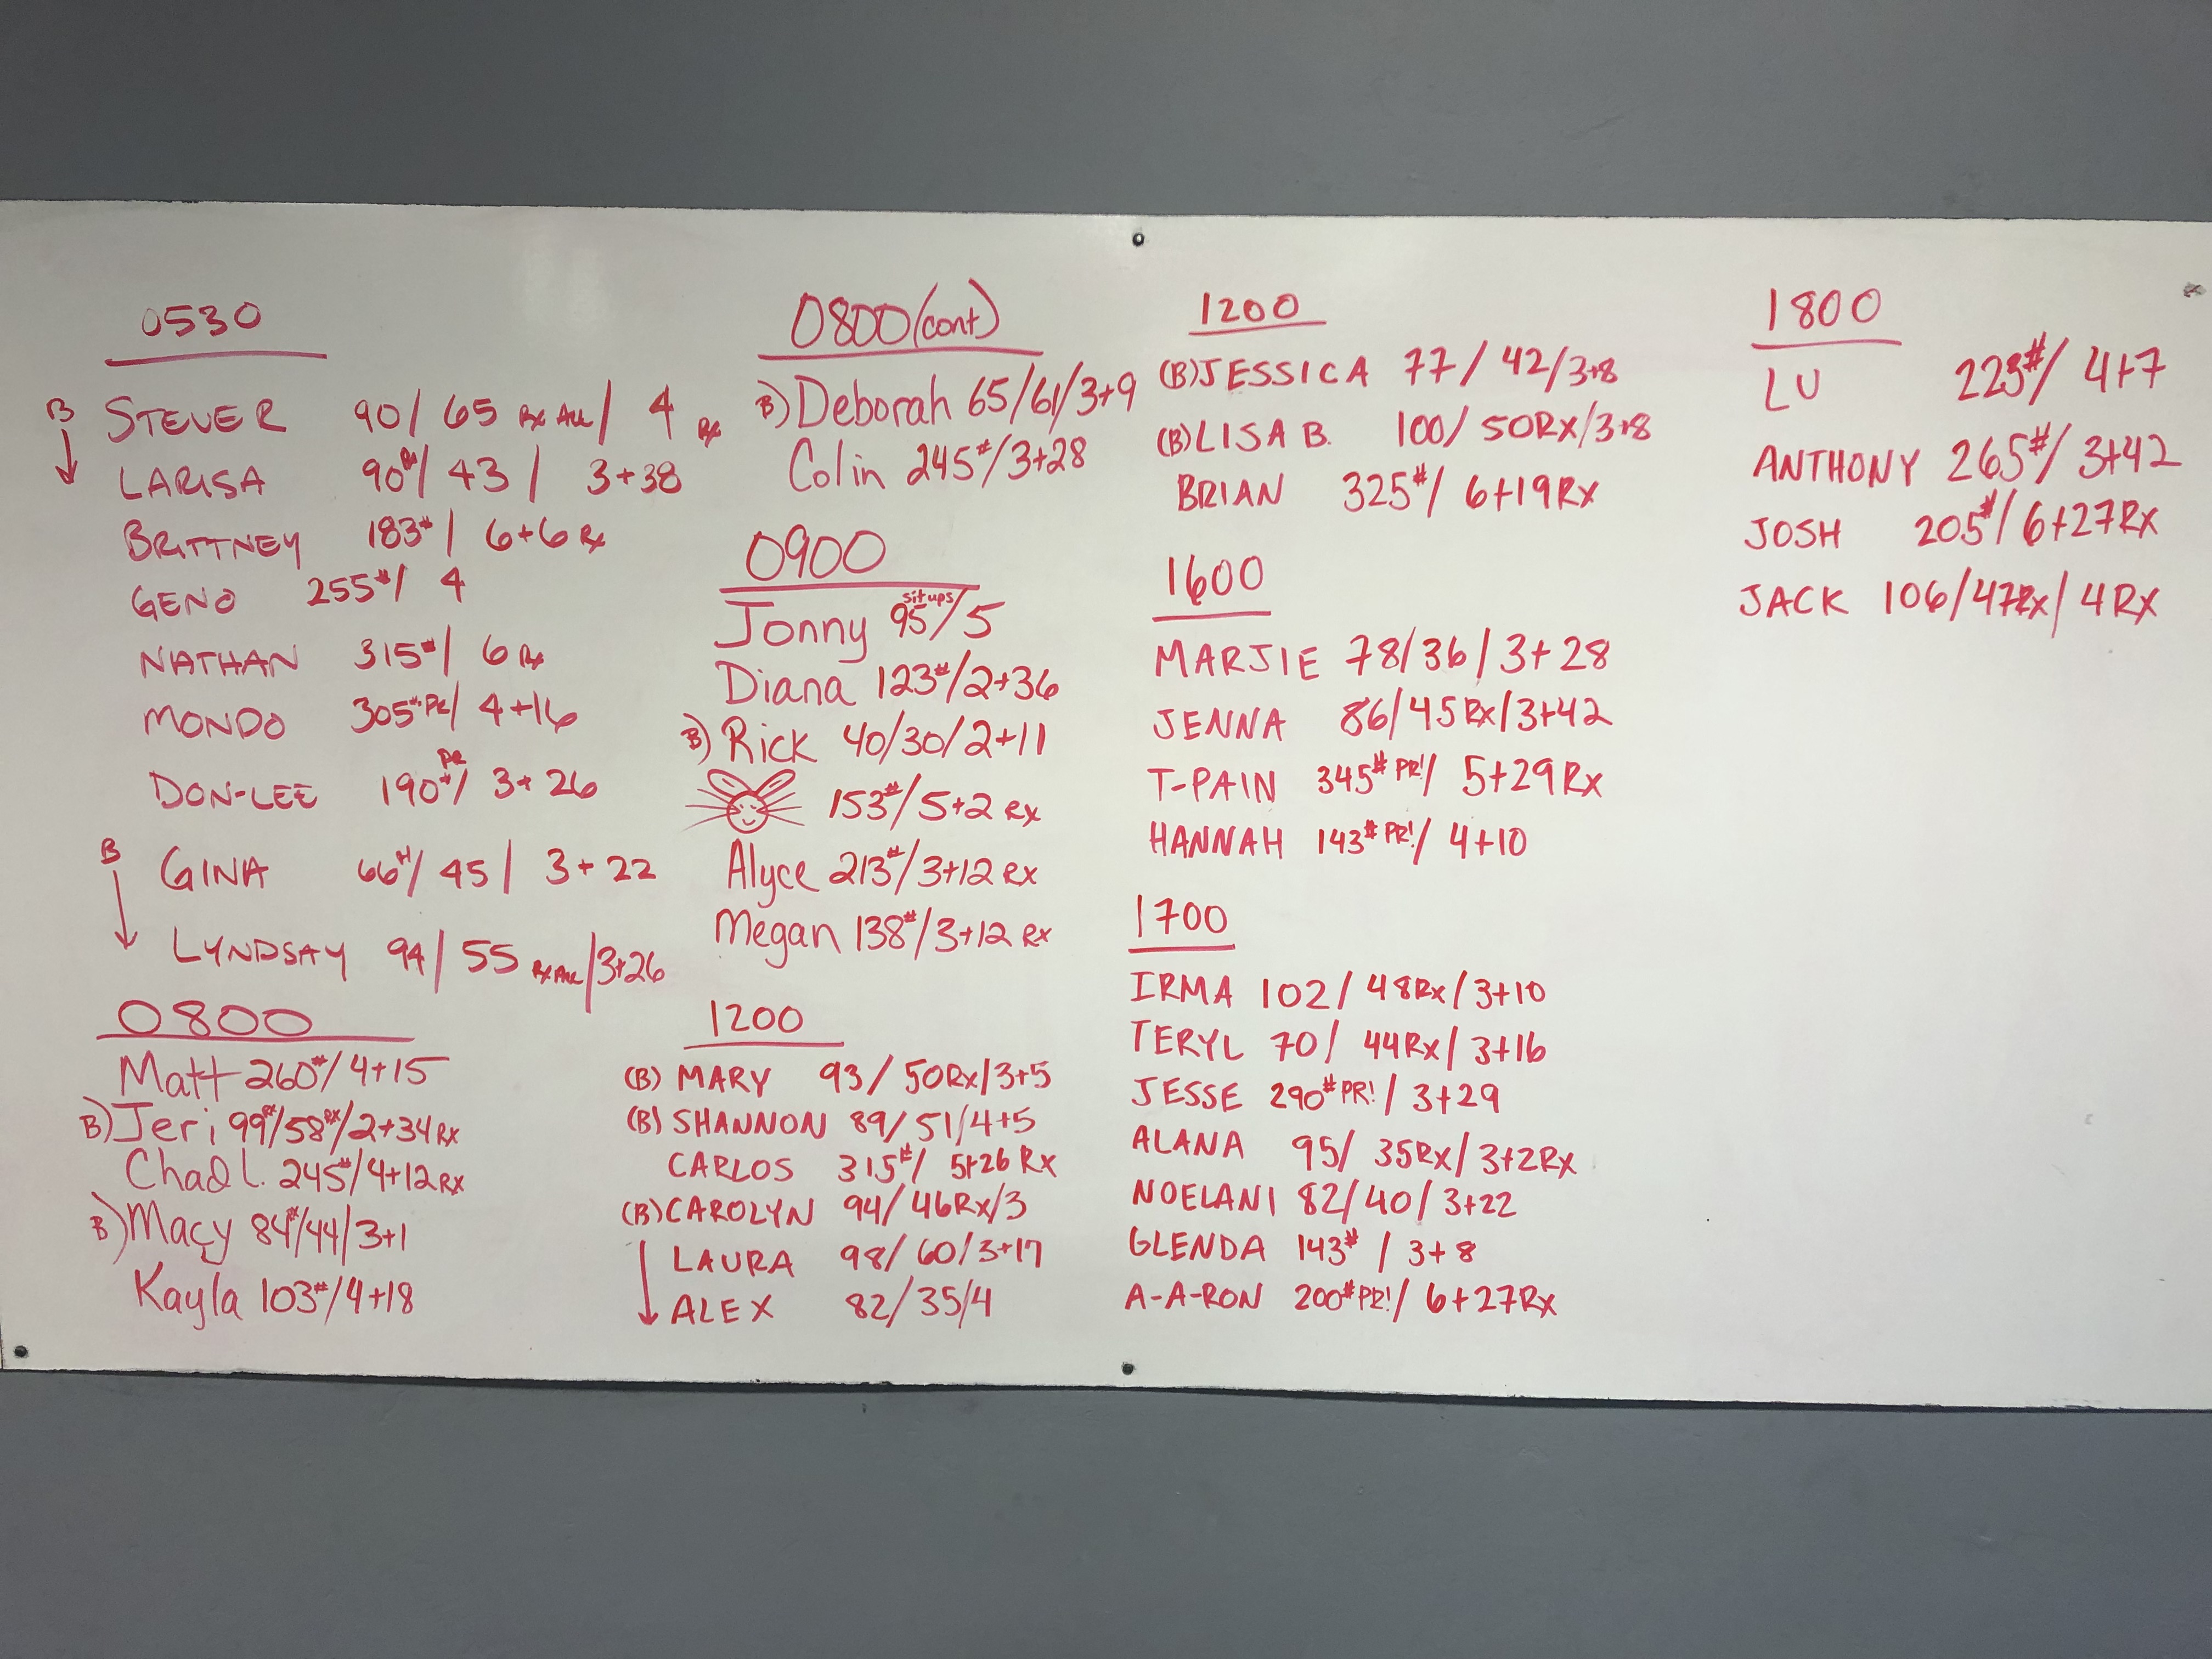 0530
B STEVER 90/ 65 Rx ALL/ 4 Rx
LARISA 90Rx/ 43 / 3+38
BRITTNEY 183#/ 6+6 Rx
GENO 255#/ 4
NATHAN 315#/ 6 Rx
MONDO 305# PR/ 4+16
DON-LEE 190# PR/ 3+26
B GINA 66#/ 45 / 3+22
LYNDSAY 94/ 55 Rx ALL/3+26
0800
Matt 260#/4+15
B) Jeri 99Rx/58Rx/2+34 Rx
Chad L. 245#/4+12 Rx
B) Macy 84/44/3+1
Kayla 103#/4+18
0800 (cont)
B) Deborah 65/61/3+9
Colin 245#/3+28
0900
Jonny 95 situps/5
Diana 123#/2+36
B) Rick 40/30/2+11
153#/5+2 Rx
Alyce 213#/3+12 Rx
Megan 138#/3+12 Rx
1200
(B) MARY 93/ 50Rx/3+5
(B) SHANNON 89/51/4+5
CARLOS 315#/ 5+26 Rx
(B) CAROLYN 94/46Rx/3
LAURA 98/60/3+17
ALEX 82/35/4
1200
(B) JESSICA 77/ 42/3+8
(B) LISA B. 100/ 50RX/3+8
BRIAN 325#/ 6+19RX
1600
MARJIE 78/36/3+28
JENNA 86/45Rx/3+42
T-PAIN 345# PR!/ 5+29Rx
HANNAH 143# PR!/ 4+10
1700
IRMA 102/ 48Rx/3+10
TERYL 70/ 44Rx/3+16
JESSE 290# PR!/ 3+29
ALANA 95/ 35Rx/3+2Rx
NOELANI 82/40/3+22
GLENDA 143# / 3+8
A-A-RON 200# PR!/ 6+27Rx
1800
LU 223#/ 4+7
ANTHONY 265#/ 3+42
JOSH 205#/6+27RX
JACK 106/47Rx/4RX